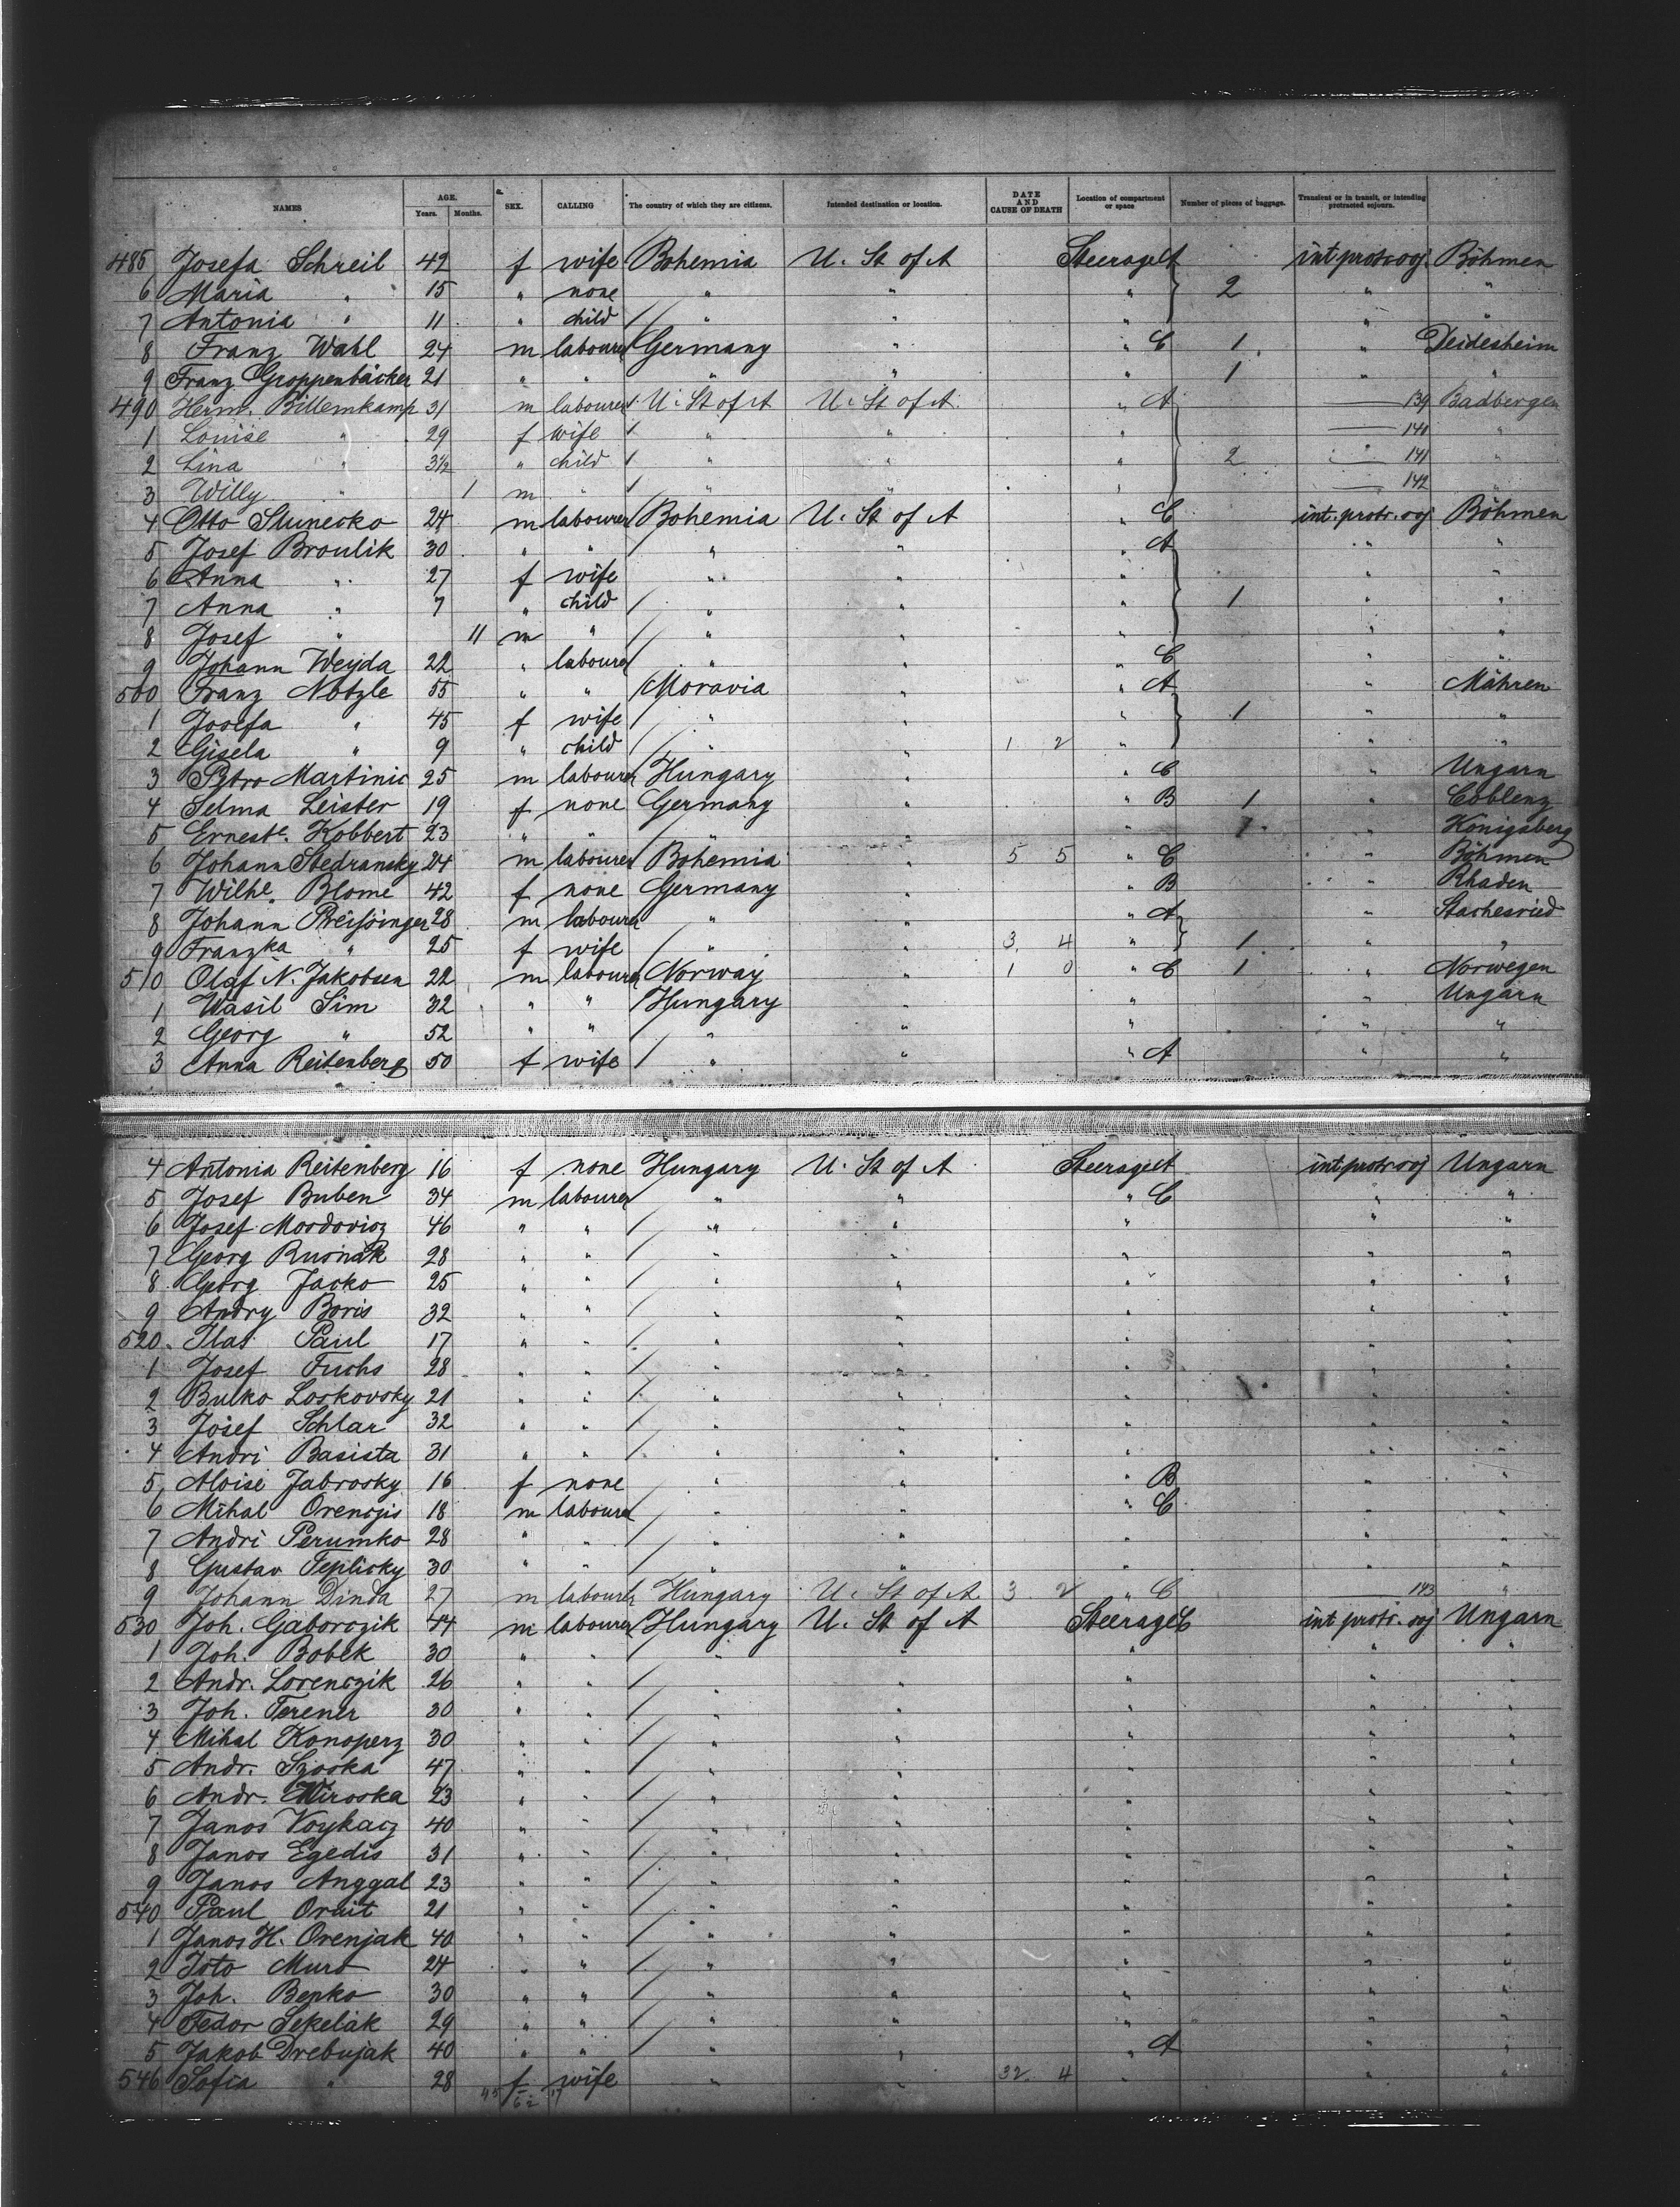 NAMES AGE. Years. Months. SEX. CALLING The country of which they are citizens. Intended destination or location. DATE AND CAUSE OF DEATH Location of compartment or space Number of pieces of baggage. Transient or in transit, or intending protracted sojourn.
485 Josefa Schreil 42 f wife Bohemia U. St of A Steerage A int protr ooj Böhmen
6 Maria " 15 " none " " " 2 " "
7 Antonia " 11 " child " " " " "
8 Franz Wahl 24 m labourer Germany " " C 1 " Deidesheim
9 Franz Groppenbächer 21 " " " " " 1 " "
490 Herm. Billemkamp 31 m labourer U. St of A U. St of A " A 139 Badbergen
1 Louise " 29 f wife " " " 140 "
2 Lina " 3½ " child " " " 2 141 "
3 Willy " 1 m " " " " 142 "
4 Otto Slunecko 24 m labourer Bohemia U. St of A " C int. protr. ooj Böhmen
5 Josef Broulik 30 " " " " " A " "
6 Anna " 27 f wife " " " " "
7 Anna " 7 " child " " " 1 " "
8 Josef " 11 m " " " " " "
9 Johann Weyda 22 " labourer " " " C " "
500 Franz Nötzle 55 " " Moravia " " A " Mähren
1 Josefa " 45 f wife " " " 1 " "
2 Gisela " 9 " child " " 1 2 " " "
3 Pytro Martinic 25 m labourer Hungary " " C " Ungarn
4 Selma Leister 19 f none Germany " " B 1 " Coblenz
5 Erneste. Kobbert 23 " " " " " 1 " Königsberg
6 Johann Stedransky 24 m labourer Bohemia " 5 5 " C " Böhmen
7 Wilhe. Blome 42 f none Germany " " B " Rhaden
8 Johann Preissinger 28 m labourer " " " A " Stachesried
9 Franzka " 25 f wife " " 3 4 " 1 " "
510 Olaf N. Jakobsen 22 m labourer Norway " 1 0 " C 1 " Norwegen
1 Wasil Sim 32 " " Hungary " " " Ungarn
2 Georg " 52 " " " " " " "
3 Anna Reitenberg 50 f wife " " " A " "
4 Antonia Reitenberg 16 f none Hungary U. St of A Steerage A int protr ooj Ungarn
5 Josef Buben 34 m labourer " " " C " "
6 Josef Mordovicz 46 " " " " " " "
7 Georg Rusnak 28 " " " " " " "
8 Georg Jacko 25 " " " " " " "
9 Andry Boris 32 " " " " " " "
520 Ilas Paul 17 " " " " " " "
1 Josef Fuchs 28 " " " " " " "
2 Bulko Loskovsky 21 " " " " " " "
3 Josef Schlar 32 " " " " " " "
4 Andri Basista 31 " " " " " " "
5 Aloise Jabrosky 16 f none " " " B " "
6 Mihal Orencjis 18 m labourer " " " C " "
7 Andri Perumko 28 " " " " " " "
8 Gustav Teplicky 30 " " " " " " "
9 Johann Dinda 27 m labourer Hungary U. St of A 3 2 " C 143 "
530 Joh. Gaborczik 44 m labourer Hungary U. St of A Steerage C int protr. ooj Ungarn
1 Joh. Bobek 30 " " " " " " "
2 Andr. Lorenczik 26 " " " " " " "
3 Joh. Ferener 30 " " " " " " "
4 Mihal Konoperz 30 " " " " " " "
5 Andr. Szoska 47 " " " " " " "
6 Andr. Miroska 23 " " " " " " "
7 Janos Voykacz 40 " " " " " " "
8 Janos Egedis 31 " " " " " " "
9 Janos Anggal 23 " " " " " " "
540 Paul Oruit 21 " " " " " " "
1 Janos H. Orenjak 40 " " " " " " "
2 Toto Muro 24 " " " " " " "
3 Joh. Bepko 30 " " " " " " "
4 Fedor Sekelak 29 " " " " " " "
5 Jakob Drebujak 40 " " " " " A " "
546 Sofia " 28 f wife " " 32 4 " " "